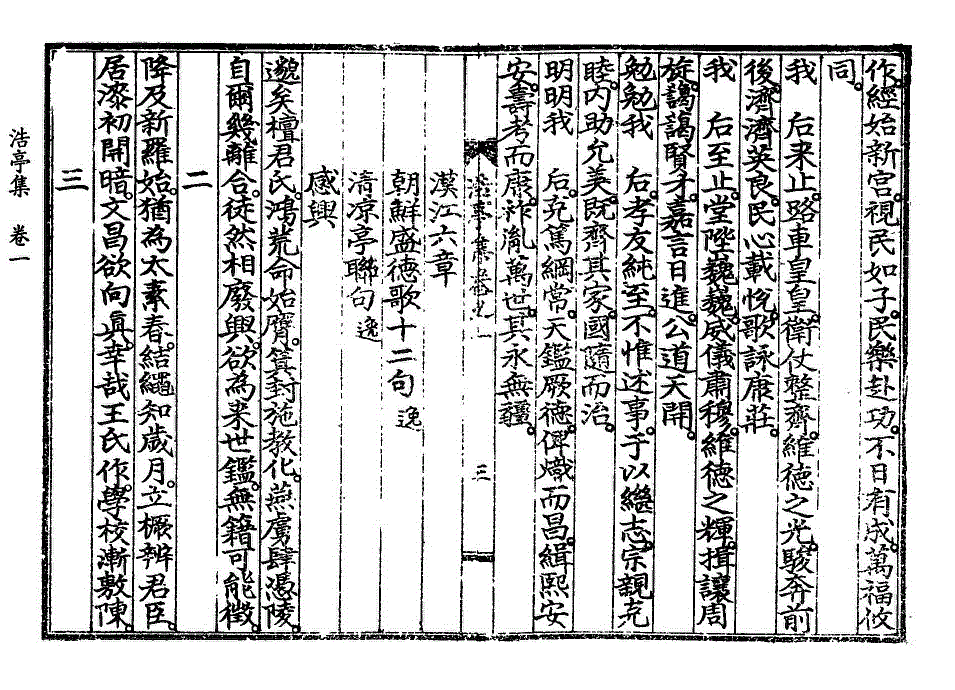 作經始新宮視民如子民樂赴功不日有成萬福攸
同
我　后來止路車皇皇衛仗整齊維德之光駿奔前
後濟濟英良民心載悅歌詠康莊
我　后至止堂陛巍巍威儀肅穆維德之輝揖讓周
旋藹藹賢才嘉言日進公道天開
勉勉我　后孝友純至不惟述事于以繼志宗親克
睦內助允美旣齊其家國隨而治
明明我　后克篤綱常天鑑厥德俾熾而昌緝熙安
安壽考而康祚胤萬世其永無疆
浩亭集卷之一　三
漢江六章
朝鮮盛德歌十二句 逸
清凉亭聯句 逸
感興
邈矣檀君氏鴻荒命始膺箕封施教化燕虜肆憑陵
自爾幾離合徒然相廢興欲爲來世鑑無籍可能徵
二
降及新羅始猶爲太素春結繩知歲月立橛辨君臣
居漆初開暗文昌欲向眞幸哉王氏作學校漸敷陳
三
浩亭集　卷一